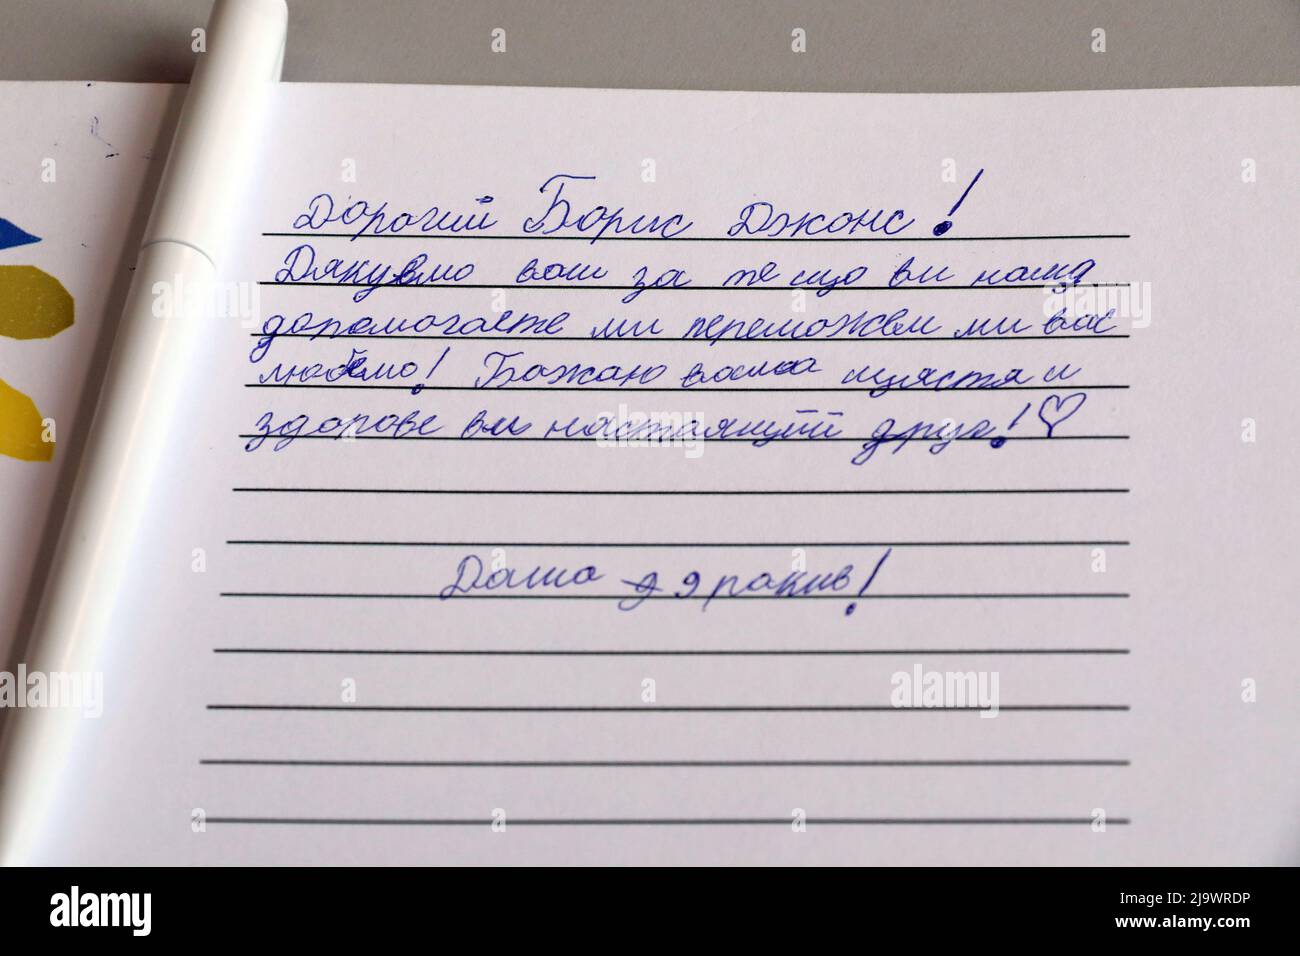 Дорогий Борис Джонс!
Дякуємо вам за те що ви нам
допомогаєте ми переможем ми вас
любемо! Бажаю вам щястя и
здоровє ви настаящий друг! ♡
Даша 9 ракив!
alamy
Image ID: 2J9WRDP
www.alamy.com